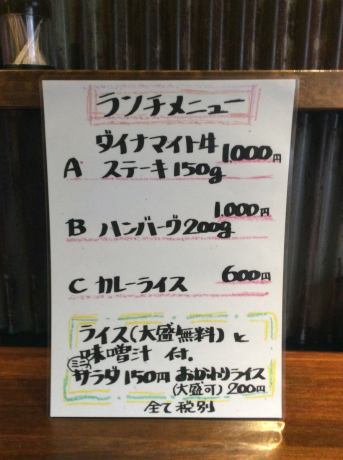 ランチメニュー
ダイナマイト牛
A ステーキ150g 1,000円
1,000円
B ハンバーグ200g
600円
C カレーライス
ライス(大盛無料)と
味噌汁 付.
ミニサラダ150円 おかわりライス
(大盛可) 200円
全て税別